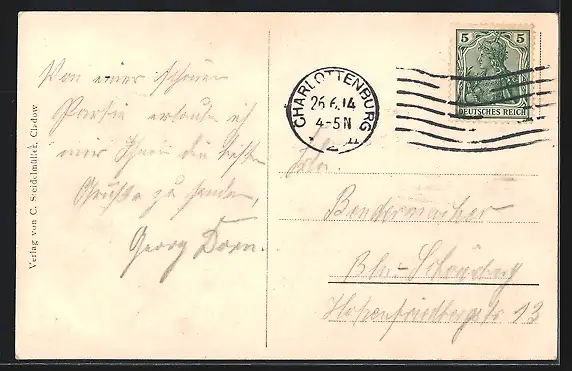 Von einer schönen
Partie erlaube ich
mir Ihnen die besten
Grüße zu senden,
Georg Dorn.
Verlag von C. Steidelmüller, Cladow
CHARLOTTENBURG
26.6.14
4-5N
5 5
DEUTSCHES REICH
Bendermacher
Bln-Schöneberg
Hohenfriedbergstr 13